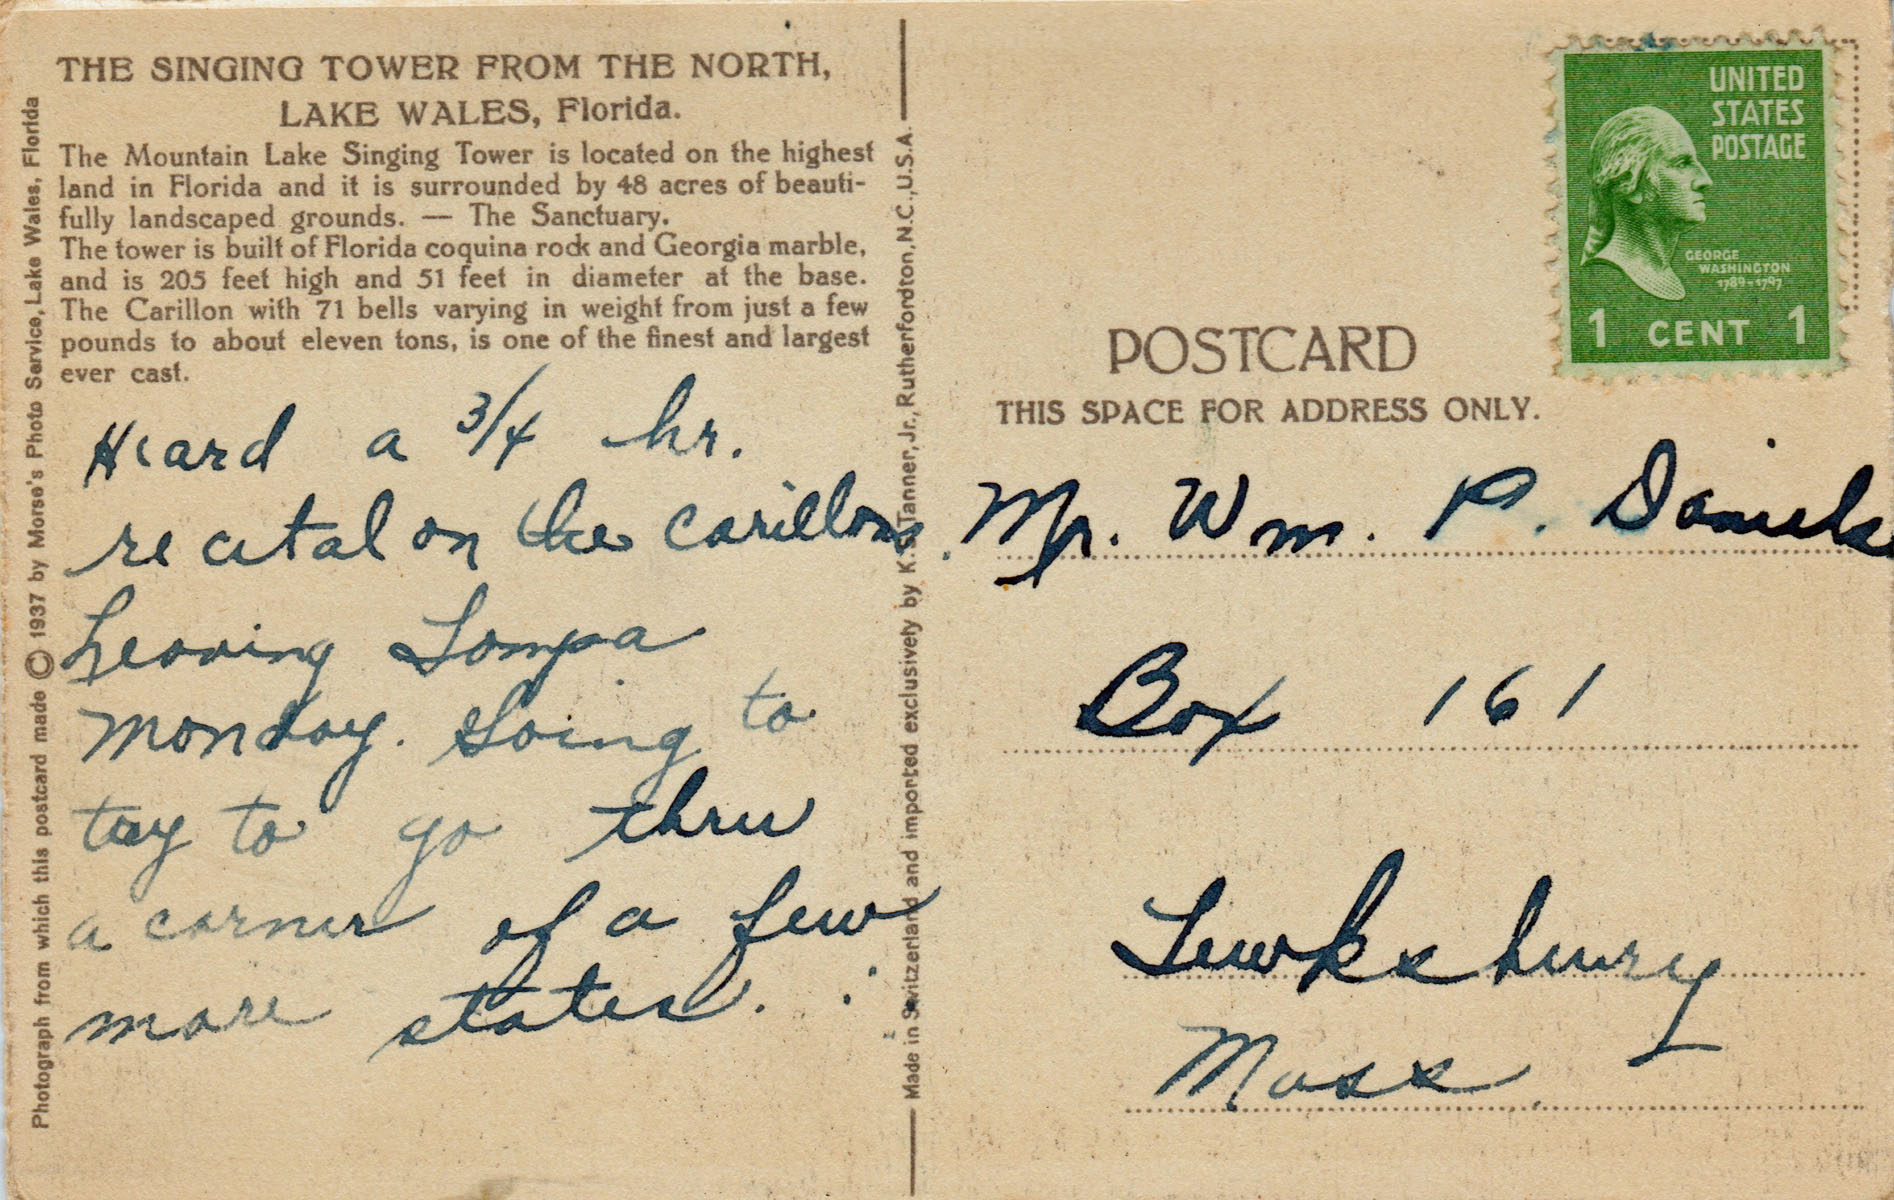 THE SINGING TOWER FROM THE NORTH,
LAKE WALES, Florida.
The Mountain Lake Singing Tower is located on the highest
land in Florida and it is surrounded by 48 acres of beauti-
fully landscaped grounds. — The Sanctuary.
The tower is built of Florida coquina rock and Georgia marble,
and is 205 feet high and 51 feet in diameter at the base.
The Carillon with 71 bells varying in weight from just a few
pounds to about eleven tons, is one of the finest and largest
ever cast.
Heard a 3/4 hr.
recital on the carillons.
Leaving Tampa
Monday. Going to
try to go thru
a corner of a few
more states.
Photograph from which this postcard made © 1937 by Morse's Photo Service, Lake Wales, Florida
Made in Switzerland and imported exclusively by K. S. Tanner, Jr., Rutherfordton, N.C., U.S.A.
UNITED
STATES
POSTAGE
GEORGE
WASHINGTON
1789-1797
1 CENT 1
POSTCARD
THIS SPACE FOR ADDRESS ONLY.
Mr. Wm. P. Daniels
Box 161
Tewksbury
Mass.